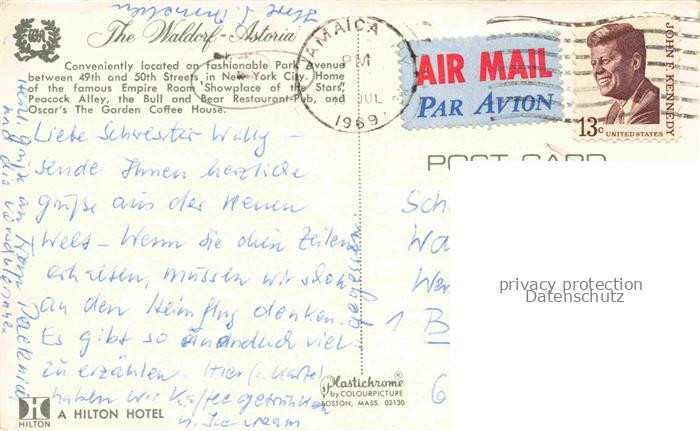 The Waldorf-Astoria
Conveniently located on fashionable Park Avenue
between 49th and 50th Streets in New York City. Home
of the famous Empire Room Showplace of the Stars,
Peacock Alley, the Bull and Bear Restaurant-Pub, and
Oscar's The Garden Coffee House.
JAMAICA
PM
JUL
1969
AIR MAIL
PAR AVION
JOHN F. KENNEDY
13c UNITED STATES
POST CARD
Liebe Schwester Wally –
sende Ihnen herzliche
Grüße aus der Neuen
Welt – Wenn Sie die Zeilen
erhalten, müssen wir schon
an den Heimflug denken.
Es gibt so unendlich viel
zu erzählen. Hier (s. Karte)
haben wir Kaffee getrunken
u. Icecream
gegessen.
Ihre
Herrn
und die
Sch
Wa
We
1 B
6
privacy protection
Datenschutz
Plastichrome®
by COLOURPICTURE
BOSTON, MASS. 02130
H
HILTON
A HILTON HOTEL